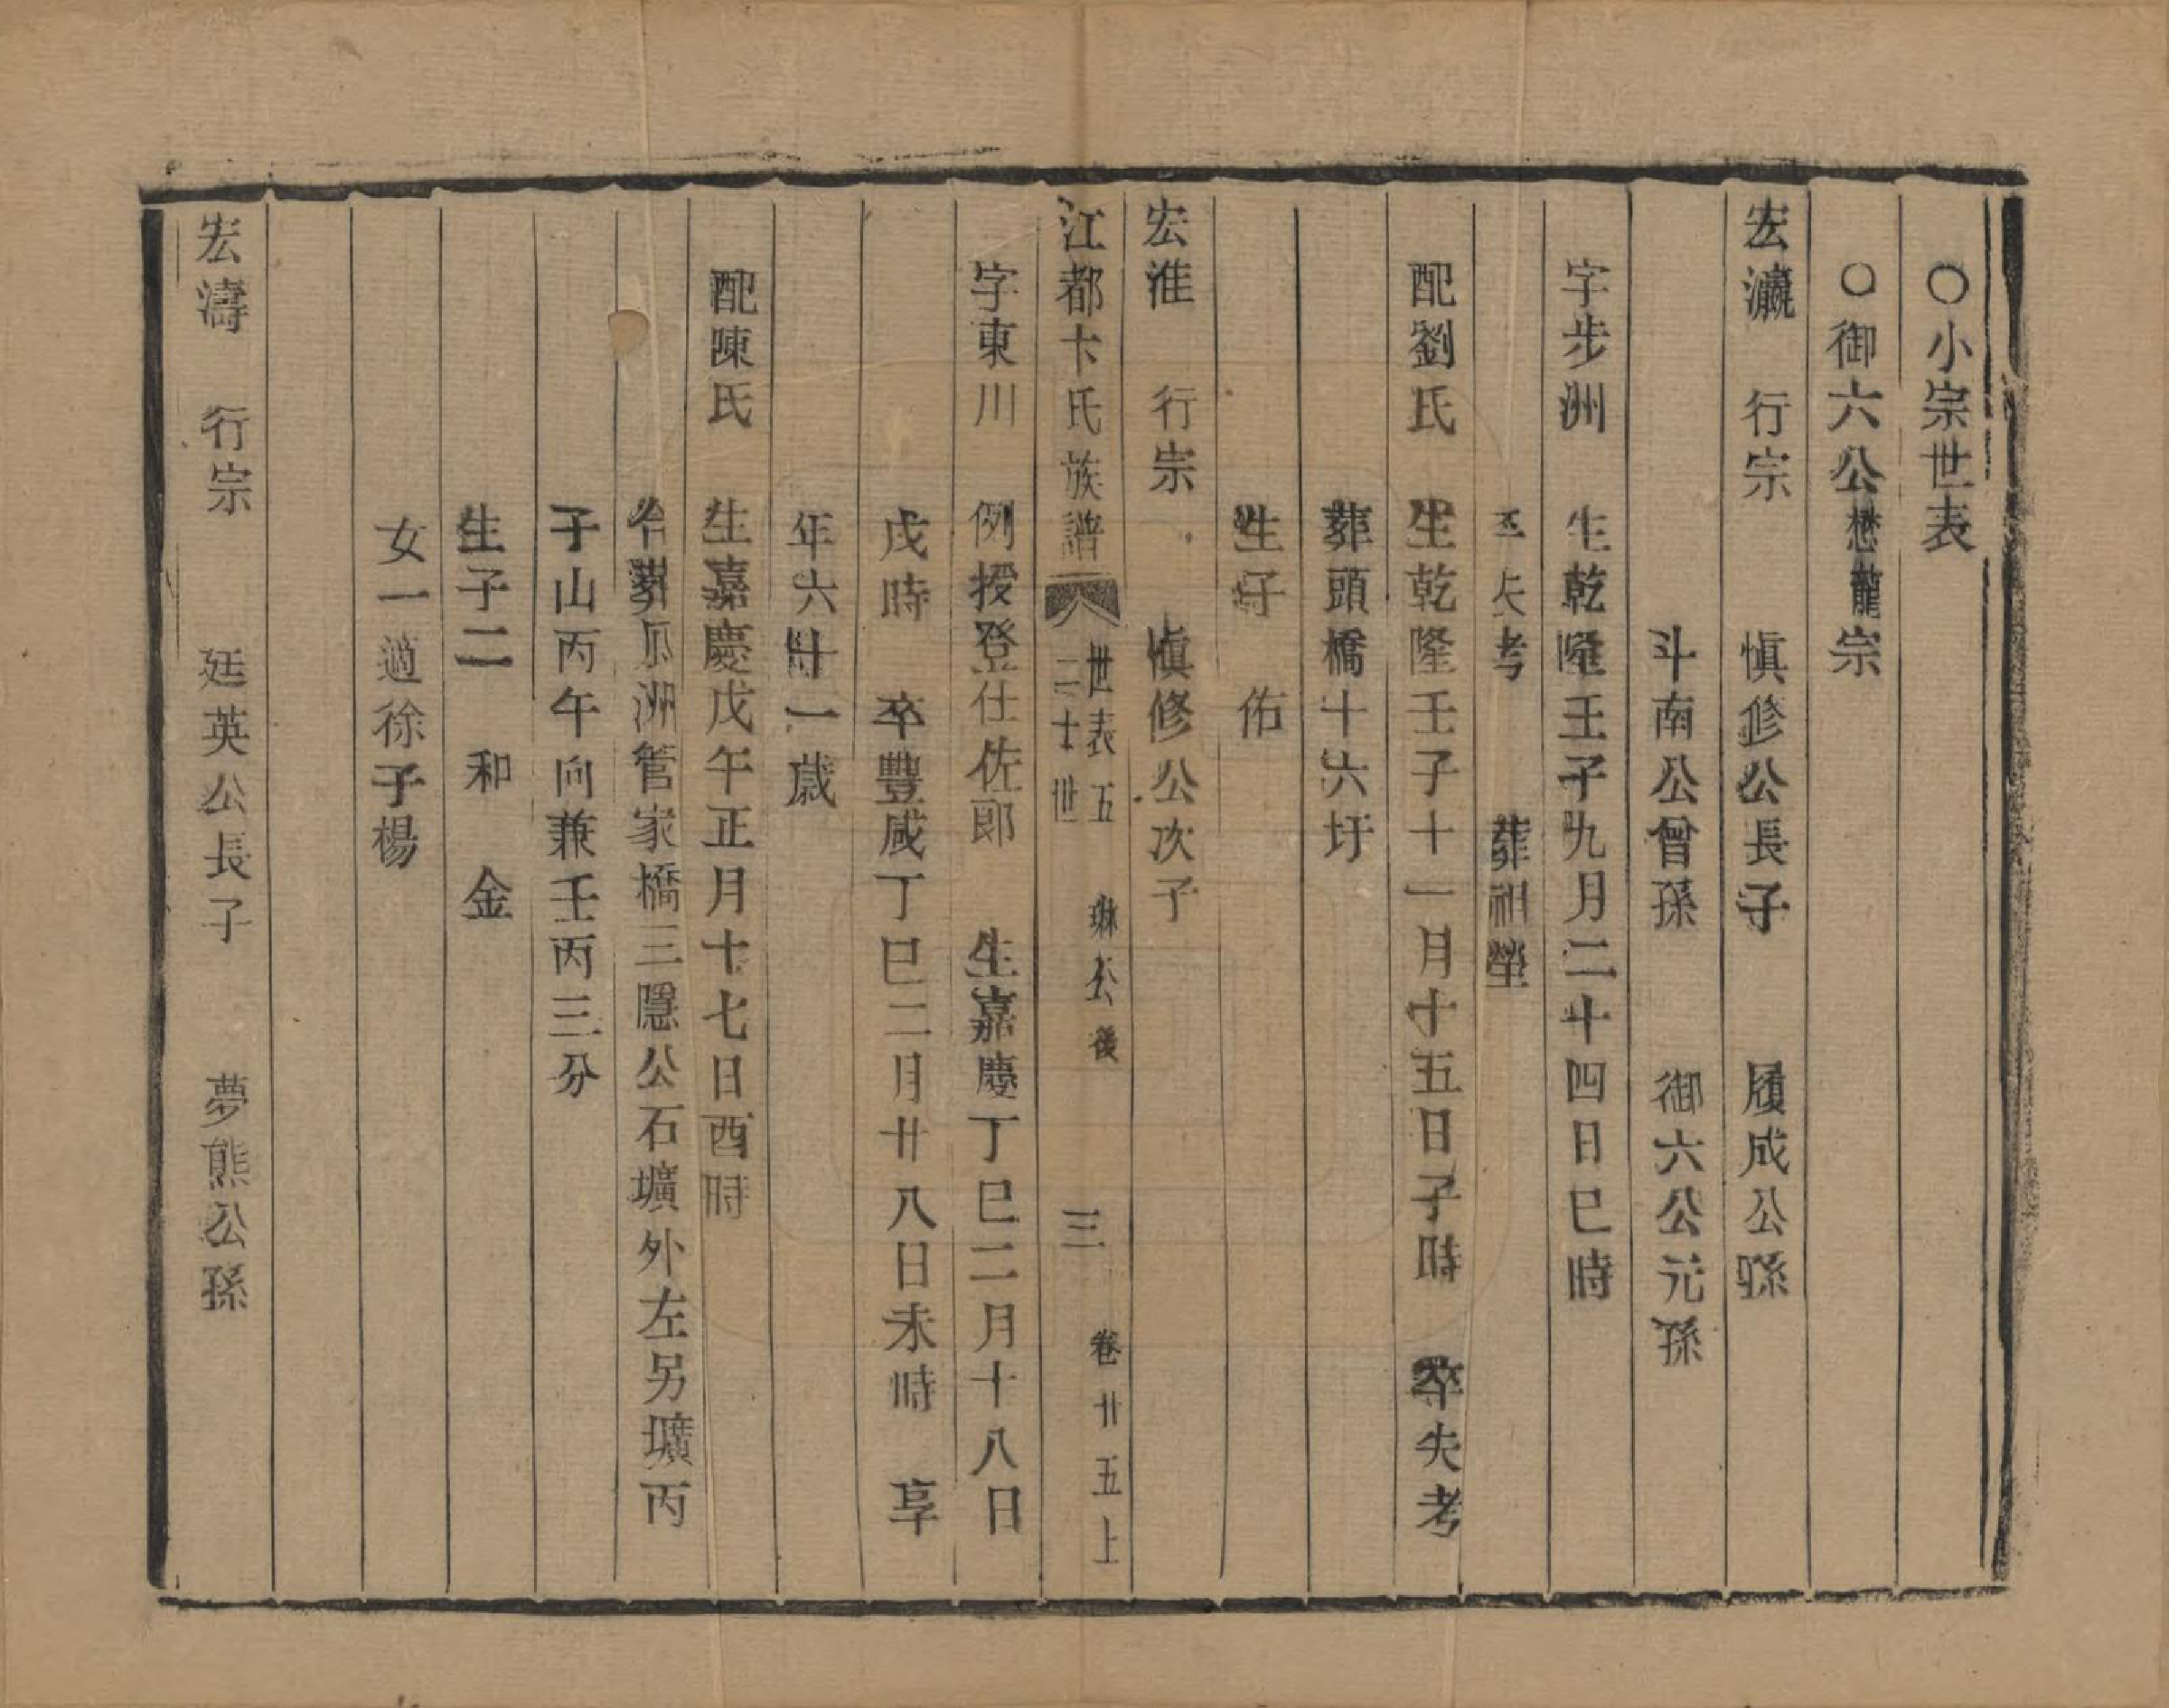 〇小宗世表
〇御六公懋龍宗
宏瀛　行宗　慎修公長子　履成公孫
斗南公曾孫　御六公元孫
字步洲　生乾隆壬子九月二十四日巳時
卒失考　葬祖塋
配劉氏　生乾隆壬子十一月十五日子時　卒失考
葬頭橋十六圩
生子　佑
宏淮　行宗　慎修公次子
江都卞氏族譜　世表五　二十世　琳公後　三　卷廿五上
字東川　例授登仕佐郎　生嘉慶丁巳二月十八日
戌時　卒豐咸丁巳二月廿八日未時　享
年六十一歲
配陳氏　生嘉慶戊午正月十七日酉時
合葬瓜洲管家橋三隱公石壙外左另壙丙
子山丙午向兼壬丙三分
生子二　和　金
女一適徐子楊
宏濤　行宗　廷英公長子　夢熊公孫